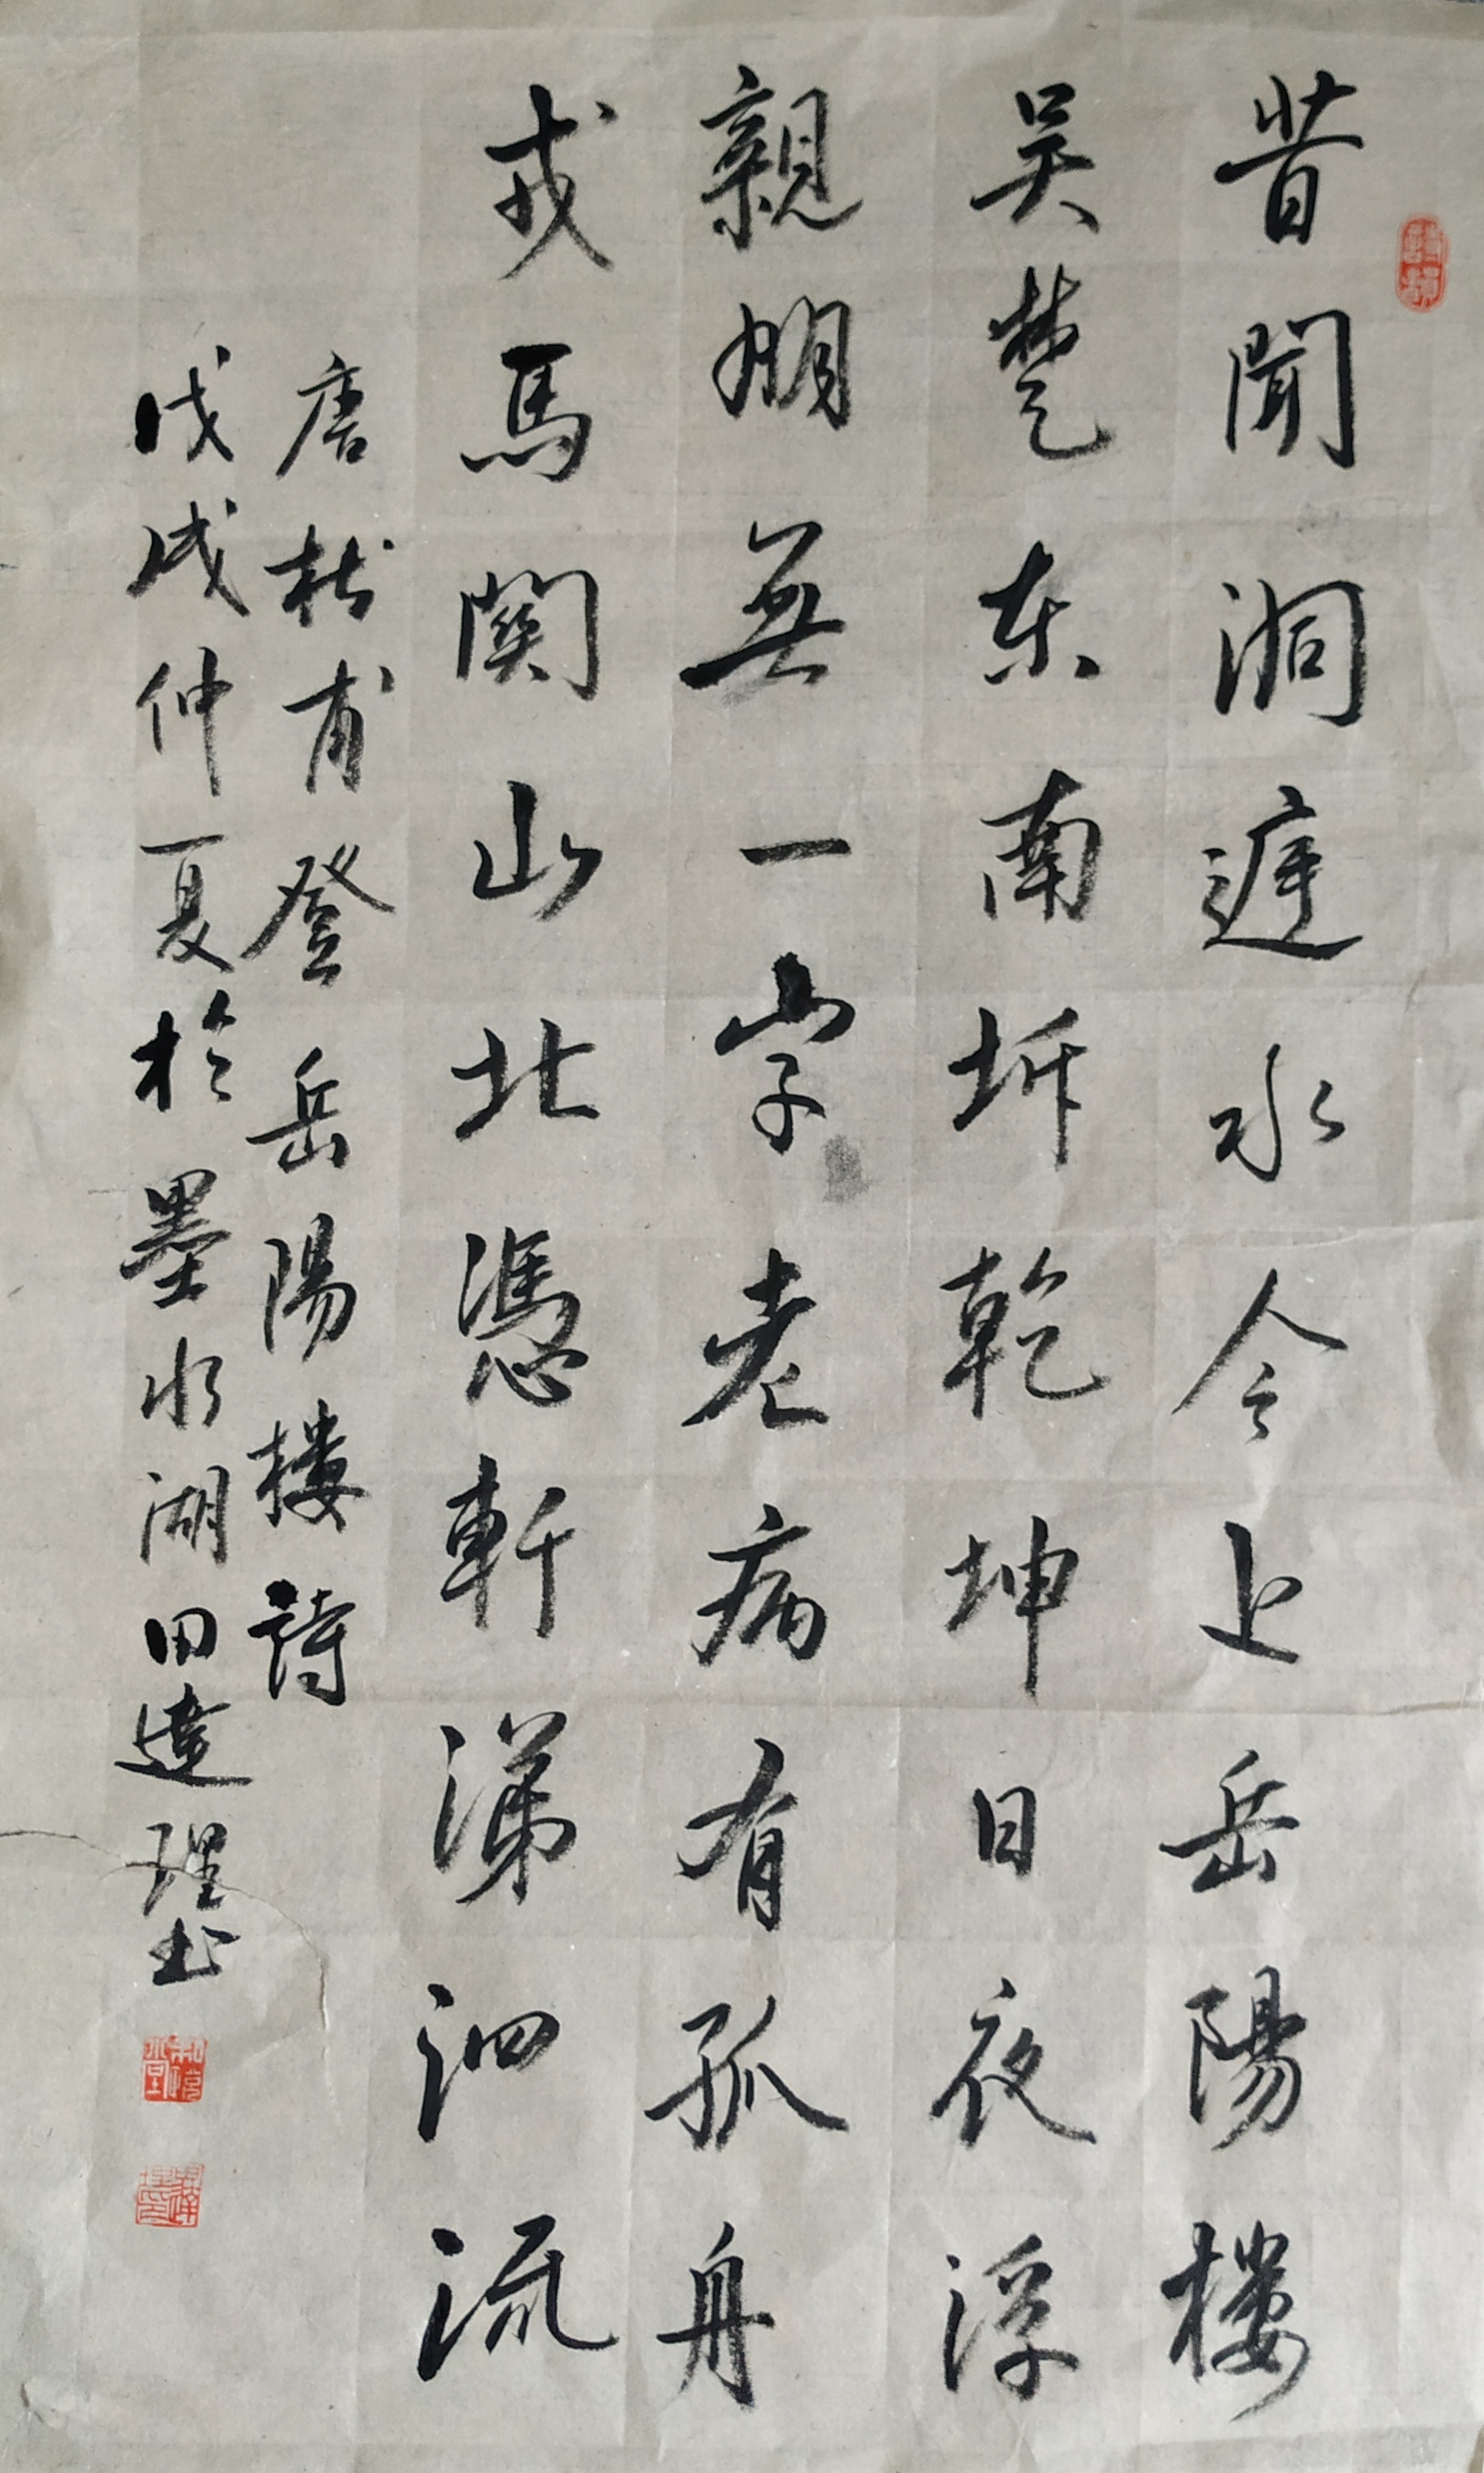 昔聞洞遅水今上岳陽楼
吴楚东南坼乾坤日夜浮
親朋無一字老病有孤舟
戎馬関山北憑軒涕泗流
唐杜甫登岳陽楼詩
戊戌仲夏於墨水湖田達理书